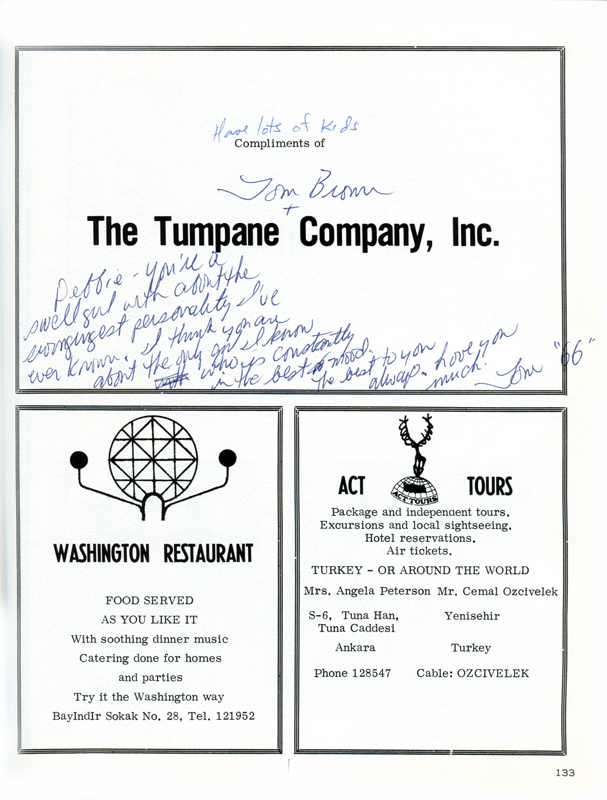 Have lots of kids
Compliments of
Tom Brown
+
The Tumpane Company, Inc.
Debbie - you're a
swell girl with about the
swingingest personality I've
ever known. I think you are
about the only girl I know
who is constantly
in the best of mood.
The best to you
always. Love you
much. Tom "66"
WASHINGTON RESTAURANT
FOOD SERVED
AS YOU LIKE IT
With soothing dinner music
Catering done for homes
and parties
Try it the Washington way
BayIndIr Sokak No. 28, Tel. 121952
ACT TOURS
ACT TOURS
Package and independent tours.
Excursions and local sightseeing.
Hotel reservations.
Air tickets.
TURKEY - OR AROUND THE WORLD
Mrs. Angela Peterson Mr. Cemal Ozcivelek
S-6, Tuna Han, Yenisehir
Tuna Caddesi
Ankara Turkey
Phone 128547 Cable: OZCIVELEK
133